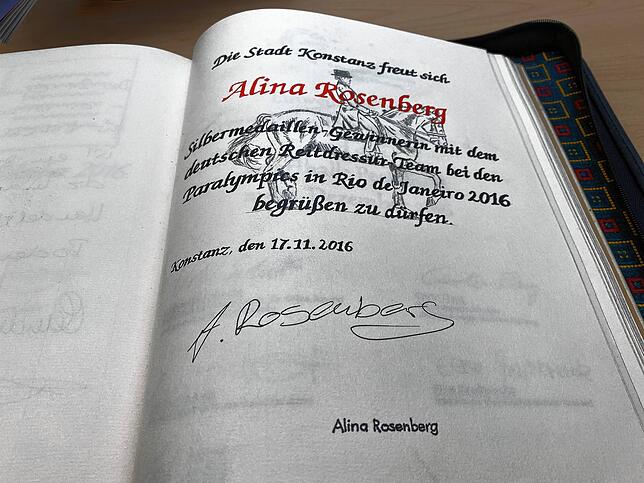 Die Stadt Konstanz freut sich
Alina Rosenberg
Silbermedaillen-Gewinnerin mit dem
deutschen Reitdressur-Team bei den
Paralympics in Rio de Janeiro 2016
begrüßen zu dürfen.
Konstanz, den 17.11.2016
A. Rosenberg
Alina Rosenberg